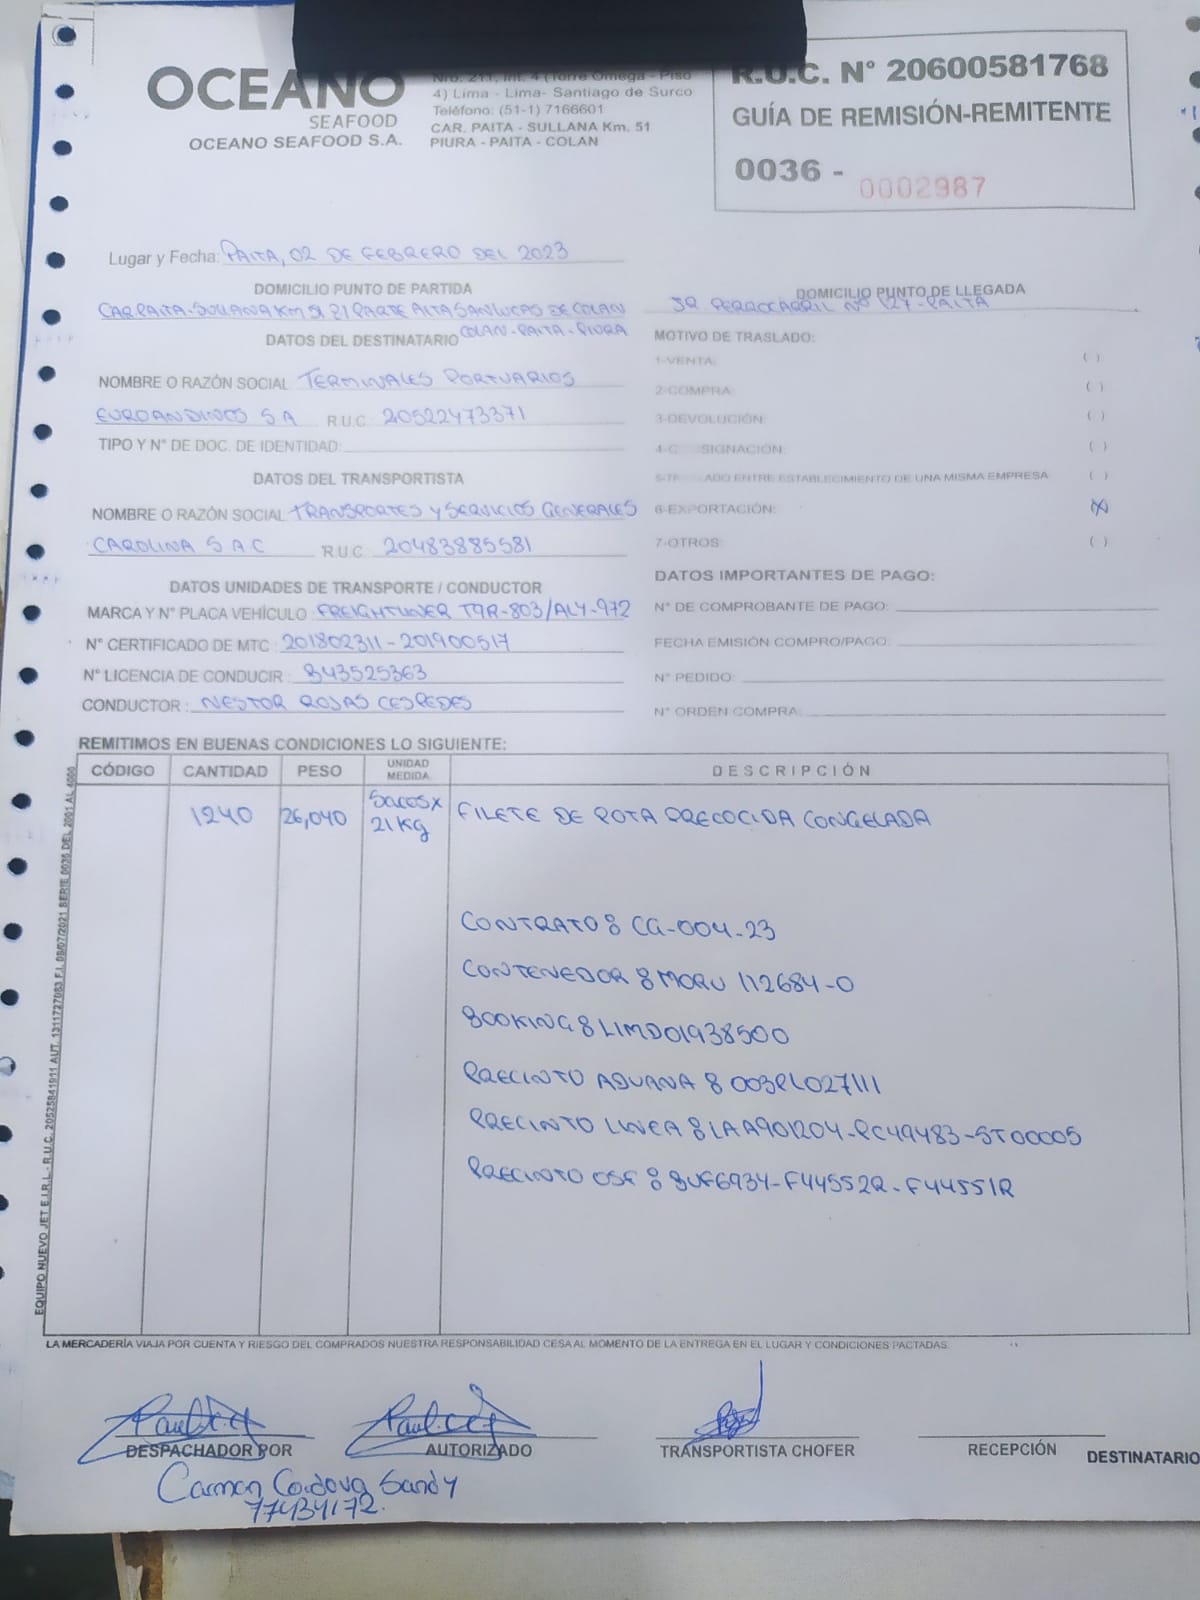 OCEANO
SEAFOOD
OCEANO SEAFOOD S.A.
Nro. 211, Int. 4 (Torre Omega - Piso
4) Lima - Lima- Santiago de Surco
Teléfono: (51-1) 7166601
CAR. PAITA - SULLANA Km. 51
PIURA - PAITA - COLAN
R.U.C. N° 20600581768
GUÍA DE REMISIÓN-REMITENTE
0036 - 0002987
Lugar y Fecha: PAITA, 02 DE FEBRERO DEL 2023
DOMICILIO PUNTO DE PARTIDA
CAR PAITA-SULLANA KM 51 Z1 PARTE ALTA SAN LUCAS DE COLAN
COLAN-PAITA-PIURA
DOMICILIO PUNTO DE LLEGADA
JR FERROCARRIL Nº 127-PAITA
DATOS DEL DESTINATARIO
NOMBRE O RAZÓN SOCIAL TERMINALES PORTUARIOS
EUROANDINOS SA RUC 20522473371
TIPO Y N° DE DOC. DE IDENTIDAD:
DATOS DEL TRANSPORTISTA
NOMBRE O RAZÓN SOCIAL TRANSPORTES Y SERVICIOS GENERALES
CAROLINA SAC RUC 20483885581
DATOS UNIDADES DE TRANSPORTE / CONDUCTOR
MARCA Y N° PLACA VEHÍCULO: FREIGHTLINER T9R-803/ALY-972
N° CERTIFICADO DE MTC: 201802311-201900517
N° LICENCIA DE CONDUCIR: B43525363
CONDUCTOR: NESTOR ROJAS CESPEDES
MOTIVO DE TRASLADO:
1-VENTA: ( )
2-COMPRA: ( )
3-DEVOLUCIÓN: ( )
4-C SIGNACIÓN: ( )
ENTRE ESTABLECIMIENTO DE UNA MISMA EMPRESA ( )
6-EXPORTACIÓN: (X)
7-OTROS: ( )
DATOS IMPORTANTES DE PAGO:
N° DE COMPROBANTE DE PAGO:
FECHA EMISIÓN COMPRO/PAGO:
N° PEDIDO:
N° ORDEN COMPRA:
REMITIMOS EN BUENAS CONDICIONES LO SIGUIENTE:
CÓDIGO CANTIDAD PESO UNIDAD MEDIDA DESCRIPCIÓN
1240 26,040 Sacos x 21 Kg FILETE DE POTA PRECOCIDA CONGELADA
CONTRATO: CG-004-23
CONTENEDOR: MORU 112684-0
BOOKING: LIMD01938500
PRECINTO ADUANA: 003PL027111
PRECINTO LINEA: LAA901204-PC49483-ST00005
PRECINTO OSF: BUF6934-F44552R-F44551R
EQUIPO NUEVO JET E.I.R.L - R.U.C. 20525841911 AUT. 1311727083 F.I. 08/07/2021 SERIE 0036 DEL 2001 AL 4000
LA MERCADERÍA VIAJA POR CUENTA Y RIESGO DEL COMPRADOS NUESTRA RESPONSABILIDAD CESA AL MOMENTO DE LA ENTREGA EN EL LUGAR Y CONDICIONES PACTADAS.
DESPACHADOR POR
AUTORIZADO
TRANSPORTISTA CHOFER
RECEPCIÓN
DESTINATARIO
Carmen Cordova Sandy
77434172.